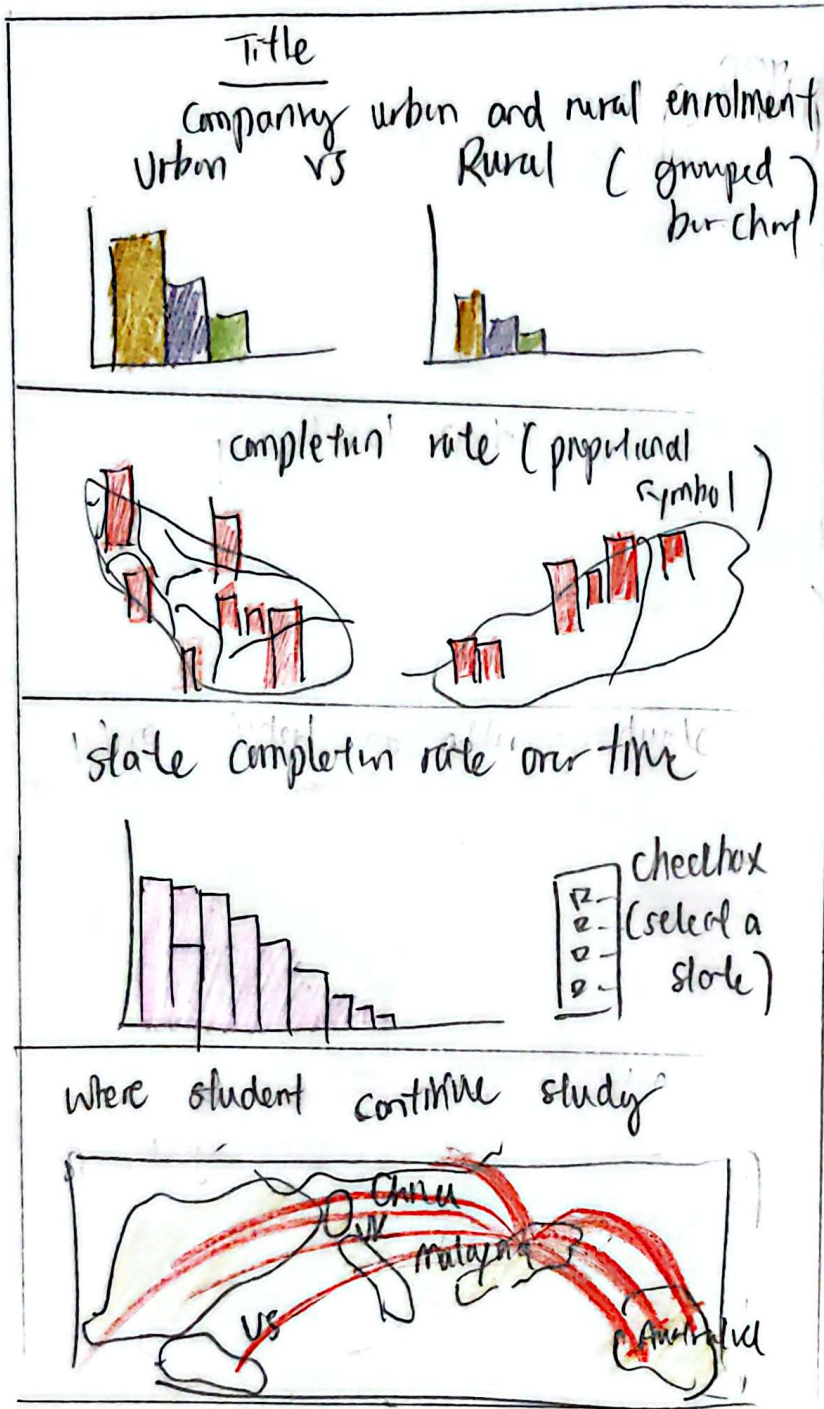 Title
Comparing urban and rural enrolment
Urban vs Rural (grouped
bar chart)
completion rate (proportional
symbol)
state completion rate over time
checkbox
(select a
state)
where student continue study
China
UK
Malaysia
US
Australia